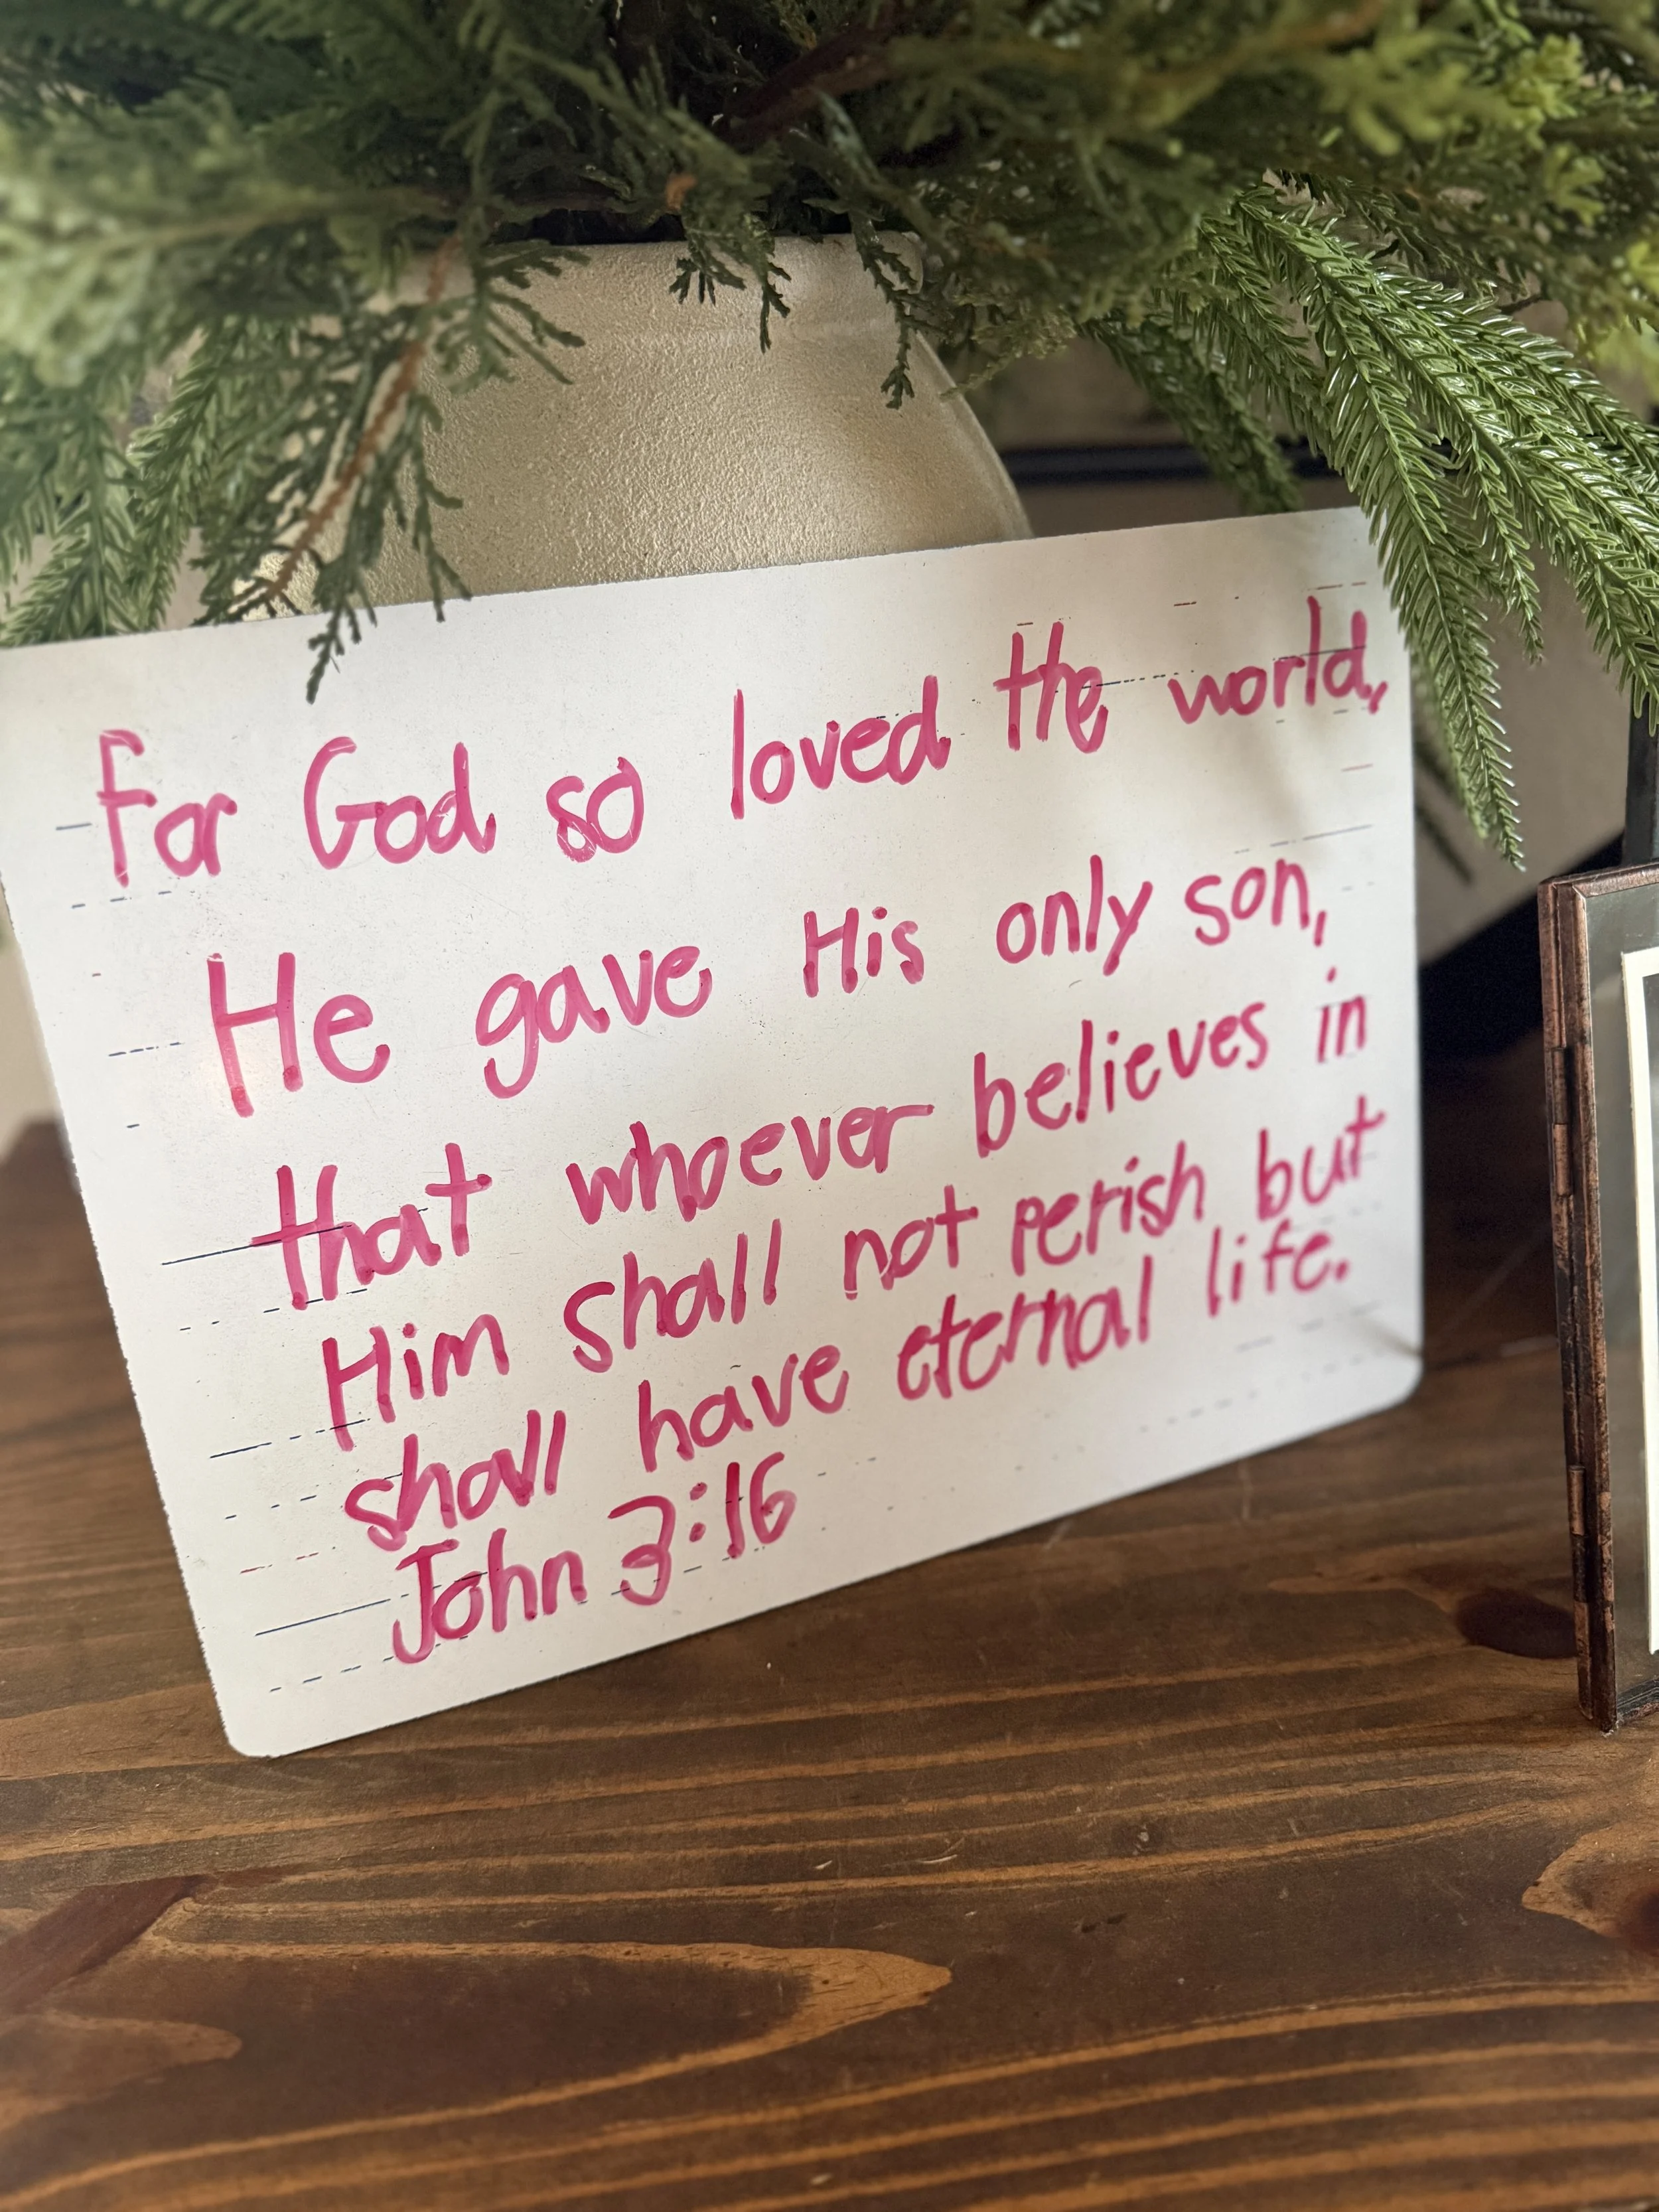 For God so loved the world,
He gave His only son,
that whoever believes in
Him shall not perish but
shall have eternal life.
John 3:16